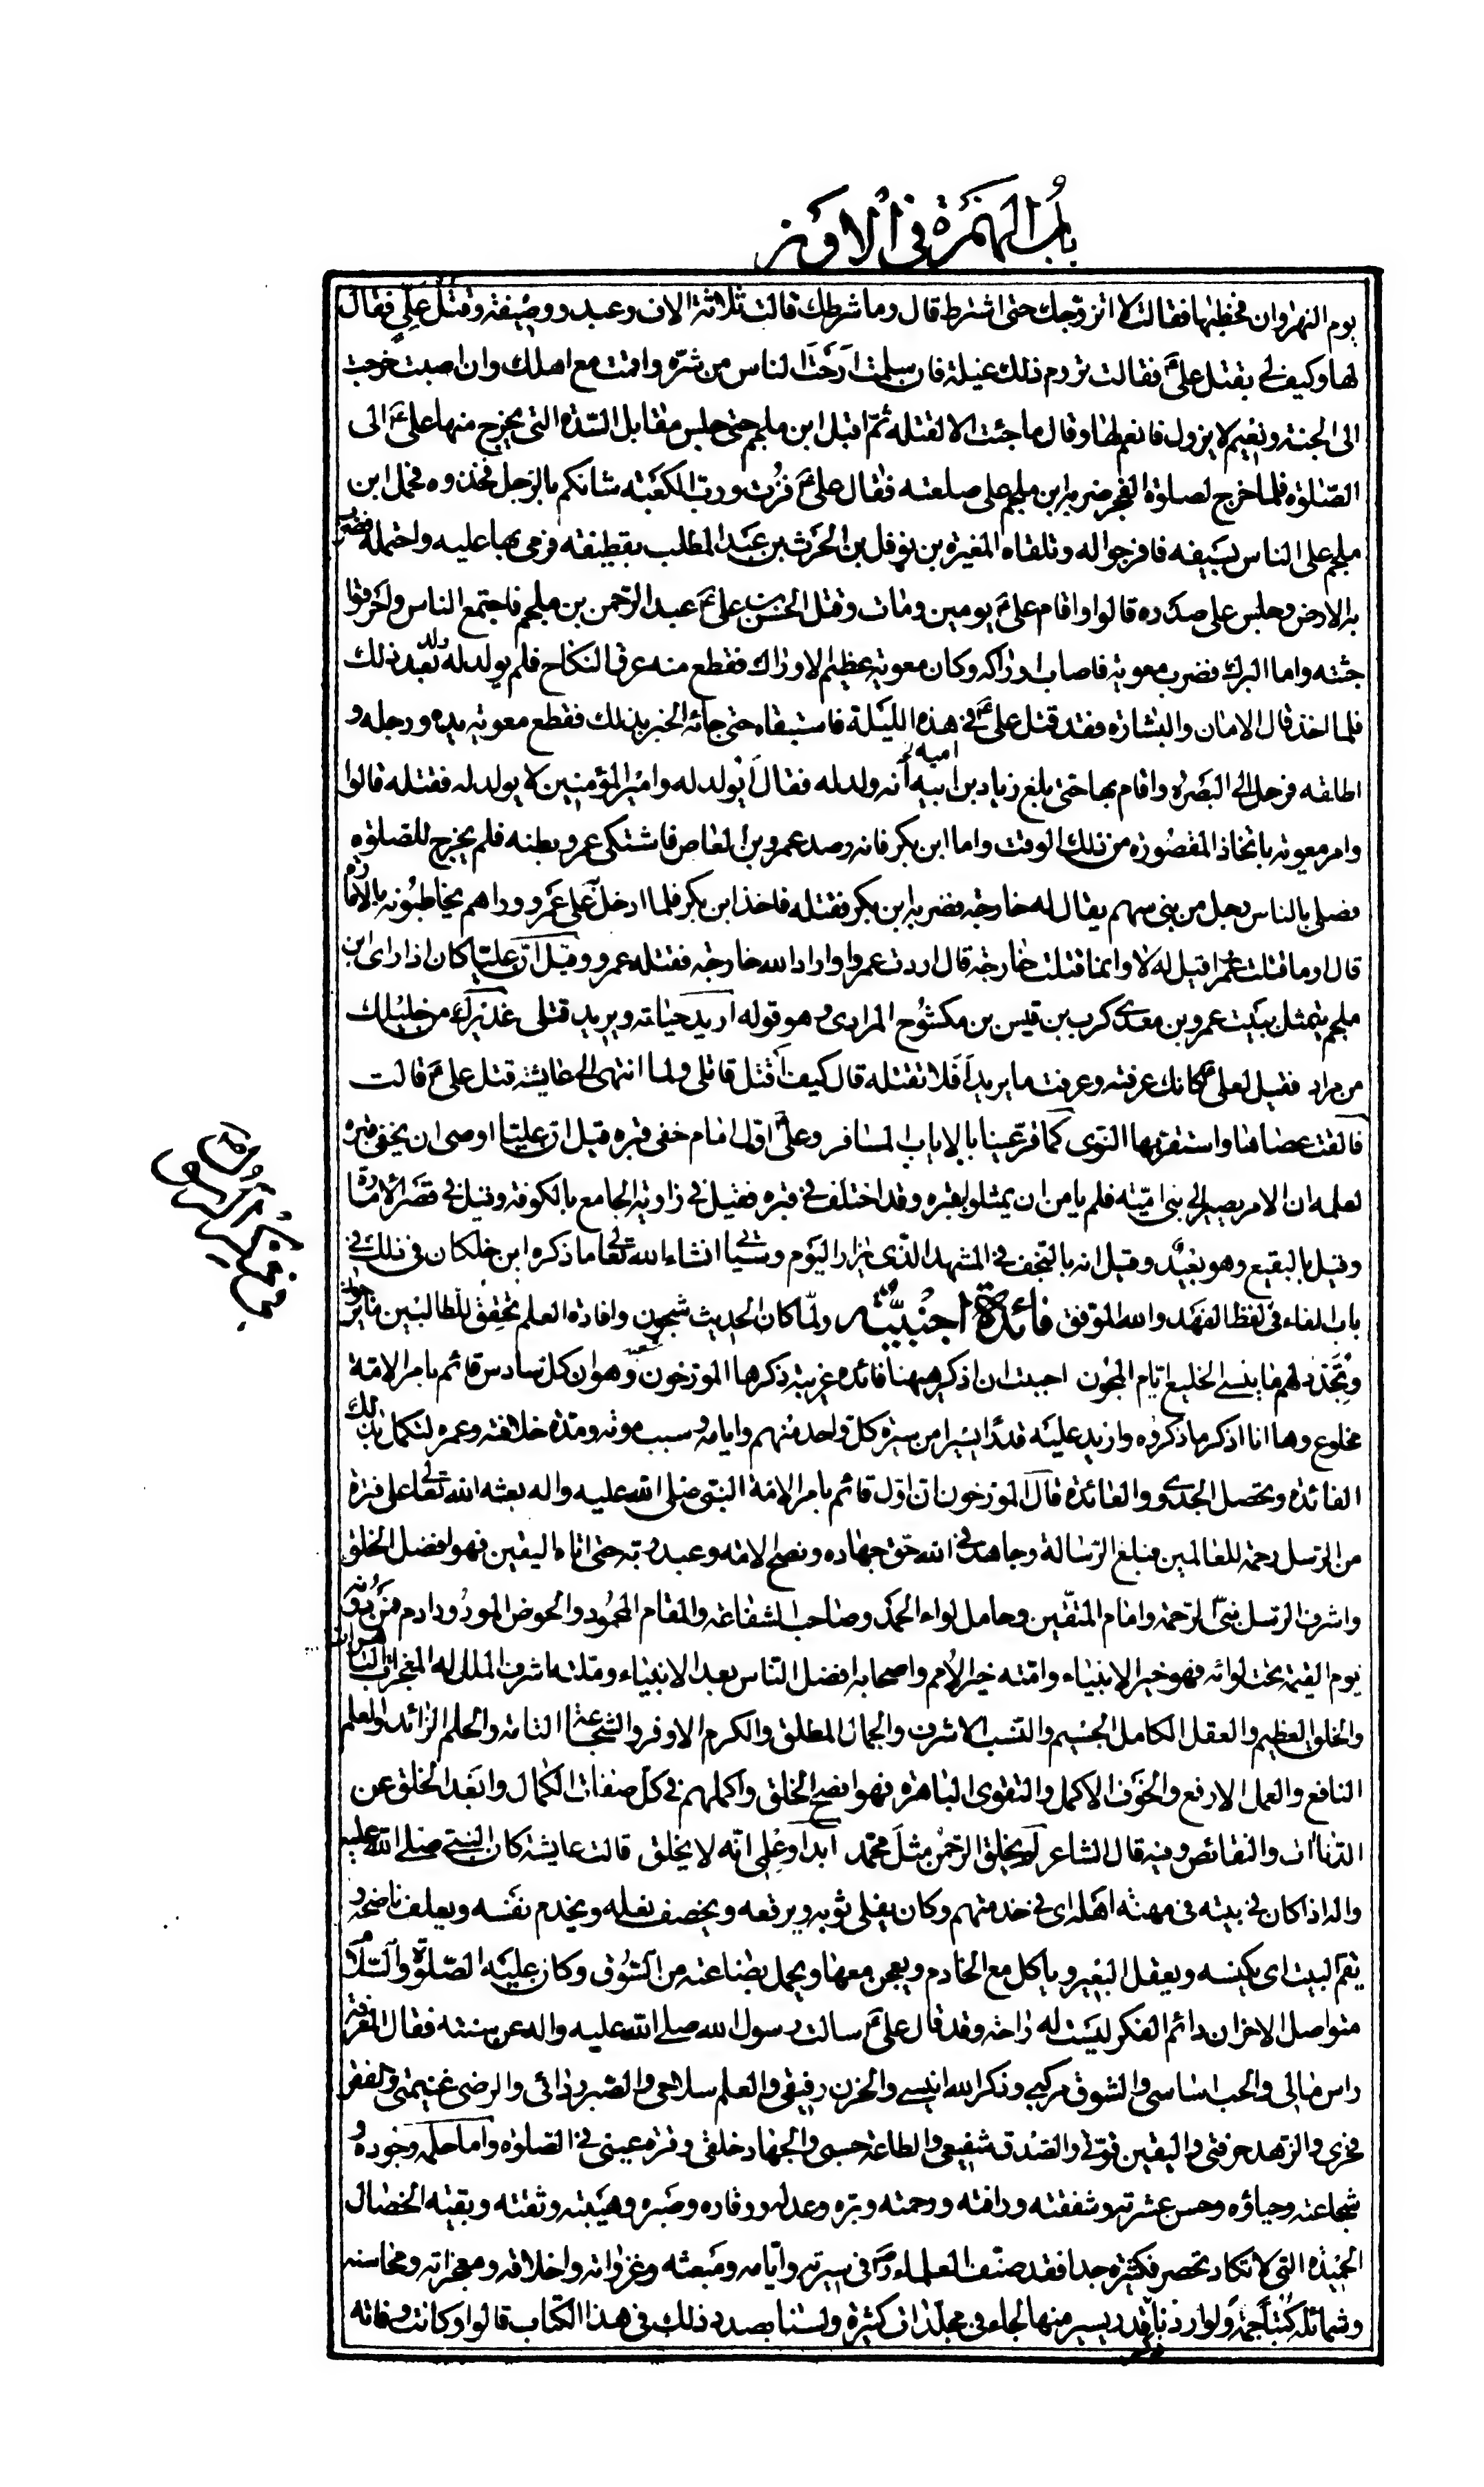 باب الهمزة في الاوز
يوم النهروان فخطبها فقالت لا اتزوجك حتى اشترط قال وما شرطك قالت ثلاثة الاف وعبد ووصيفة وقتل علي فقال
لها وكيف لي بقتل علي ع فقالت تروم ذلك غيلة فان سلمت ارحت الناس من شره واقمت مع اهلك وان اصبت خرجت
الى الجنة ونعيم لا يزول فانعم لها وقال ما جئت الا لقتله ثم اقبل ابن ملجم حتى جلس مقابل السدة التي يخرج منها علي ع الى
الصلوة فلما خرج لصلوة الفجر ضربه ابن ملجم على صلعته فقال علي ع فزت ورب الكعبة شانكم بالرجل فخذوه فحمل ابن
ملجم على الناس بسيفه فافرجوا له وتلقاه المغيرة بن نوفل بن الحرث بن عبد المطلب بقطيفة فرمى بها عليه واحتمله فضرب
به الارض وجلس على صدره قالوا واقام علي ع يومين ومات وقتل الحسن بن علي ع عبد الرحمن بن ملجم فاجتمع الناس واحرقوا
جثته واما البرك فضرب معوية فاصاب اوراكه وكان معوية عظيم الاوراك فقطع منه عرق النكاح فلم يولد له ولد بعد ذلك
فلما اخذ قال الامان والبشارة فقد قتل علي ع في هذه الليلة فاستبقاه حتى جائه الخبر بذلك فقطع معوية يده ورجله و
اطلقه فرحل الى البصرة واقام بها حتى بلغ زياد بن ابيه انه ولد له فقال ايولد له وامير المؤمنين لا يولد له فقتله قالوا
وامر معوية باتخاذ المقصورة من ذلك الوقت واما ابن بكر فانه رصد عمرو بن العاص فاشتكى عمرو بطنه فلم يخرج للصلوة
فصلى بالناس رجل من بني سهم يقال له خارجة فضربه ابن بكر فقتله فاخذ ابن بكر فلما ادخل على عمرو وراهم يخاطبونه بالامارة
قال اوما قتلت عمرا قيل له لا وانما قتلت خارجة قال اردت عمروا واراد الله خارجة فقتله عمرو وقيل ان عليا كان اذا راى ابن
ملجم يتمثل ببيت عمرو بن معدي كرب بن قيس بن مكشوح المرادي وهو قوله اريد حياته ويريد قتلي عذيرك من خليلك
من مراد فقيل لعلي ع كانك عرفته وعرفت ما يريد افلا تقتله قال كيف اقتل قاتلي ولما انتهى الى عايشة قتل علي ع قالت
فالقت عصاها واستقر بها النوى كما قر عينا بالاياب المسافر وعلي ع اول امام خفي قبره قيل ان عليا اوصى ان يخفى قبره
لعلمه ان الامر يصير الى بني امية فلم يامن ان يمثلوا بقبره وقد اختلف في قبره فقيل في زاوية الجامع بالكوفة وقيل في قصر الامارة
وقيل بالبقيع وهو بعيد وقيل انه بالنجف في المشهد الذي يزار اليوم وسياتي انشاء الله تعالى ما ذكره ابن خلكان في ذلك في
باب الفاء في لفظ الفهد والله الموفق فائدة اجنبية ولما كان الحديث شجون وافادة العلم تحقق للطالبين ما يرجون
وتجدد لهم ما ينسى الخليع ايام المجون احببت ان اذكر ههنا فائدة غريبة ذكرها المورخون وهو ان كل سادس قائم بامر الامة
مخلوع وها انا اذكر ما ذكروه وازيد عليه قدرا يسيرا من سيرة كل واحد منهم وايامه وسبب موته ومدة خلافته وعمره لتكمل بذلك
الفائدة وتحصل الجدوى والعائدة قال المورخون ان اول قائم بامر الامة النبي صلى الله عليه واله بعثه الله تعالى على فترة
من الرسل رحمة للعالمين فبلغ الرسالة وجاهد في الله حق جهاده ونصح الامة وعبد ربه حتى اتاه اليقين فهو افضل الخلق
واشرف الرسل نبي الرحمة وامام المتقين وحامل لواء الحمد وصاحب الشفاعة والمقام المحمود والحوض المورود ادم فمن دونه
يوم القيمة تحت لوائه فهو خير الانبياء وامته خير الامم واصحابه افضل الناس بعد الانبياء وملته اشرف الملل له المعجزات الباهرات
والخلق العظيم والعقل الكامل الجسيم والنسب الاشرف والجمال المطلق والكرم الاوفر والشجاعة التامة والحلم الزائد والعلم
النافع والعمل الارفع والخوف الاكمل والتقوى الباهرة فهو افصح الخلق واكملهم في كل صفات الكمال وابعد الخلق عن
الدناات والنقائص وفيه قال الشاعر لم يخلق الرحمن مثل محمد ابدا وعلمي انه لا يخلق قالت عايشة كان النبي صلى الله عليه
واله اذا كان في بيته في مهنة اهله اي في خدمتهم وكان يفلي ثوبه ويرقعه ويخصف نعله ويخدم نفسه ويعلف ناضحه و
يقم البيت اي يكنسه ويعقل البعير وياكل مع الخادم ويعجن معها ويحمل بضاعته من السوق وكان عليه الصلوة والسلام
متواصل الاحزان دائم الفكر ليست له راحة وقد قال علي ع سالت رسول الله صلى الله عليه واله عن سنته فقال المعرفة
راس مالي والحب اساسي والشوق مركبي وذكر الله انيسي والحزن رفيقي والعلم سلاحي والصبر ردائي والرضى غنيمتي والفقر
فخري والزهد حرفتي واليقين قوتي والصدق شفيعي والطاعة حسبي والجهاد خلقي وقرة عيني في الصلوة واما حلمه وجوده و
شجاعته وحياؤه وحسن عشرته وشفقته ورافته ورحمته وبره وعدله ووقاره وصبره وهيبته وثقته وبقية الخصال
الحميدة التي لا تكاد تحصر فكثيرة جدا فقد صنف العلماء رض في سيرته وايامه ومبعثه وغزواته واخلاقه ومعجزاته ومحاسنه
وشمائله كتبا جمة ولو اردنا قدر يسير منها لجاء في مجلدات كثيرة ولسنا بصدد ذلك في هذا الكتاب قالوا وكانت وفاته